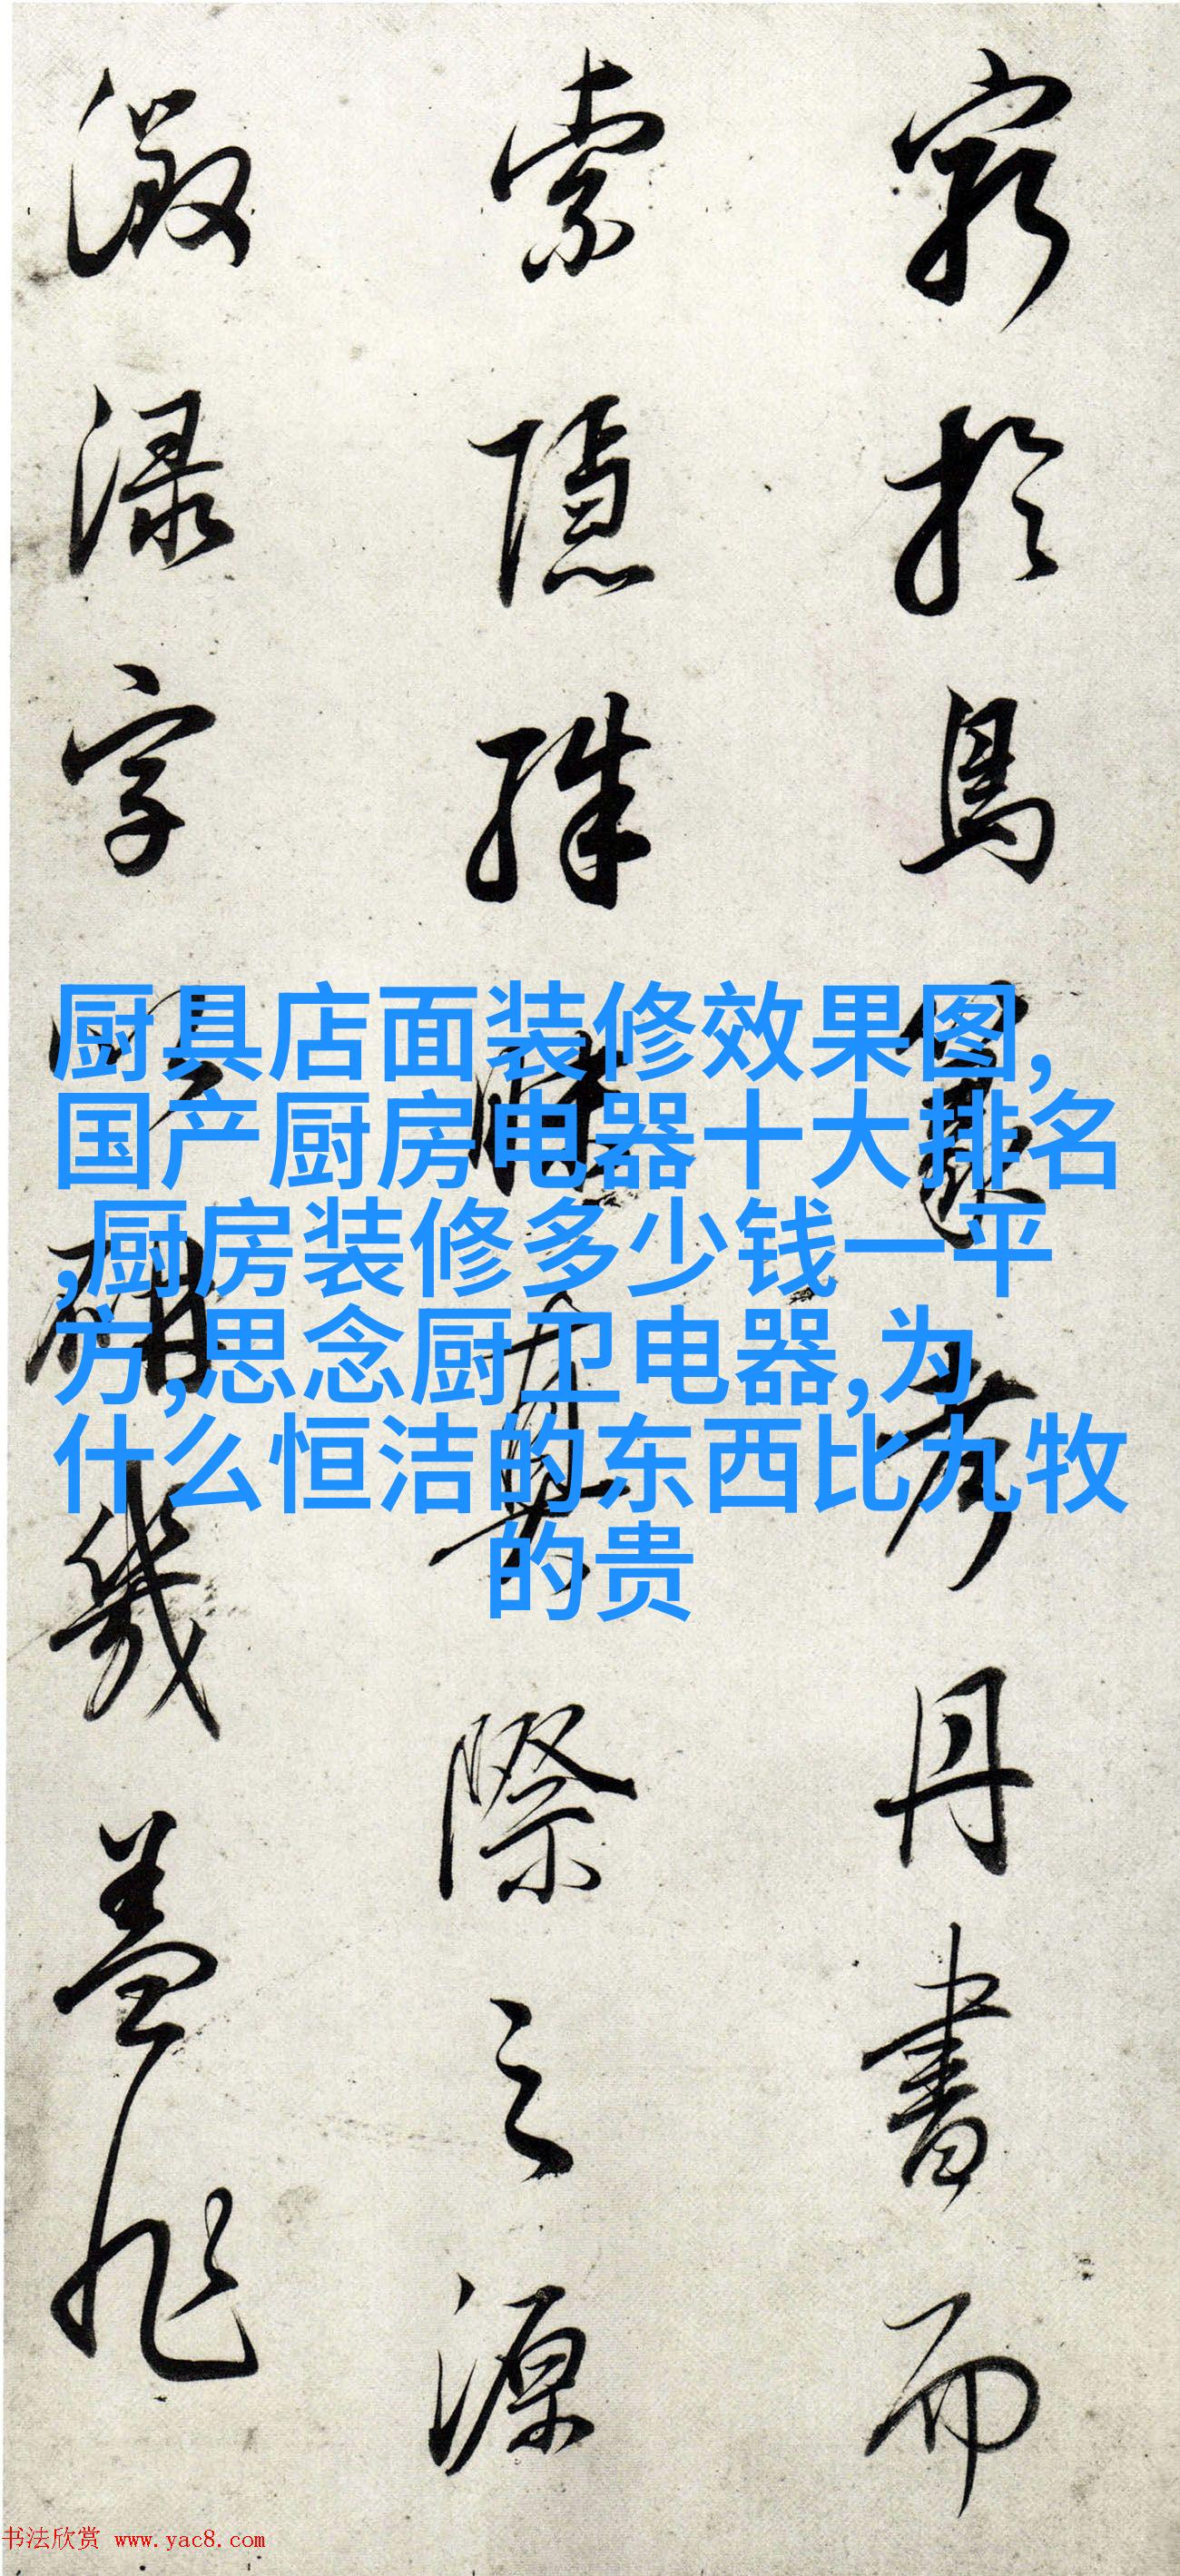 窮於鳥考丹書而
索隱殊際之源
渌字研幾蓋非
厨具店面装修效果图,
国产厨房电器十大排名
,厨房装修多少钱一平
方,思念厨卫电器,为
什么恒洁的东西比九牧
的贵
书法欣赏 www.yac8.com